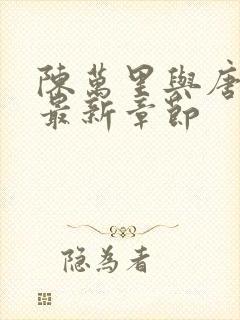 陳萬里與唐
最新章節
隐為者